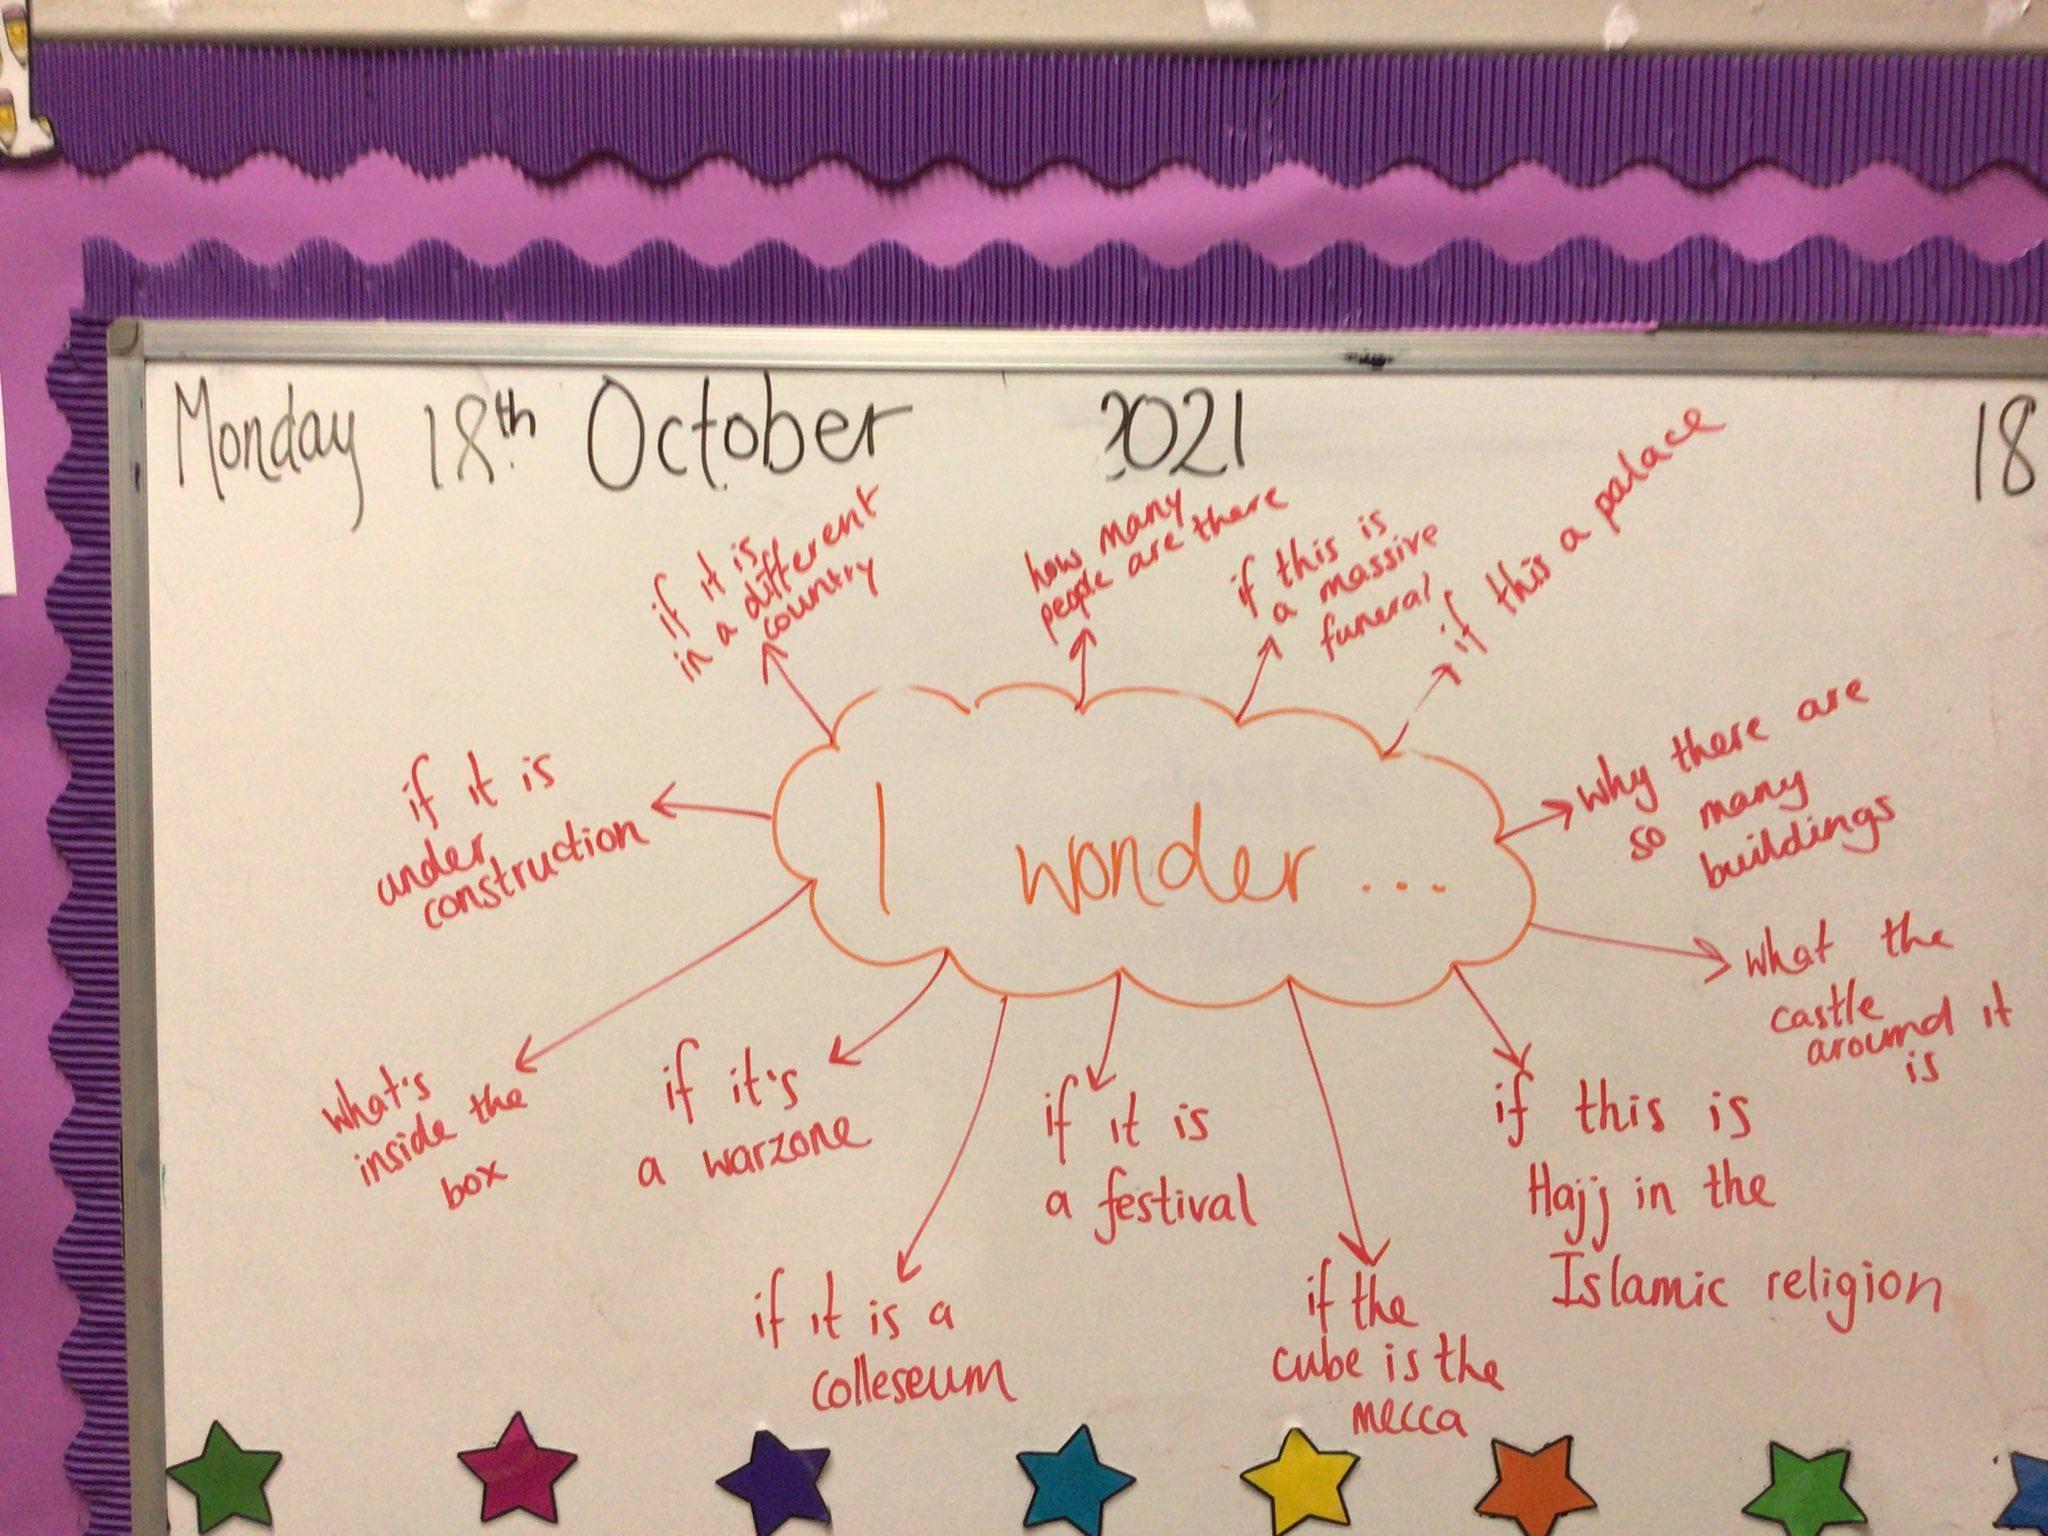 Monday 18th October 2021 18
if it is
in a different
country
how many
people are there
if this is
a massive
funeral
if this a palace
why there are
so many
buildings
if it is
under
construction
I wonder ...
what the
castle
around it
is
what's
inside the
box
if it's
a warzone
if it is
a festival
if this is
Hajj in the
Islamic religion
if it is a
colleseum
if the
cube is the
mecca